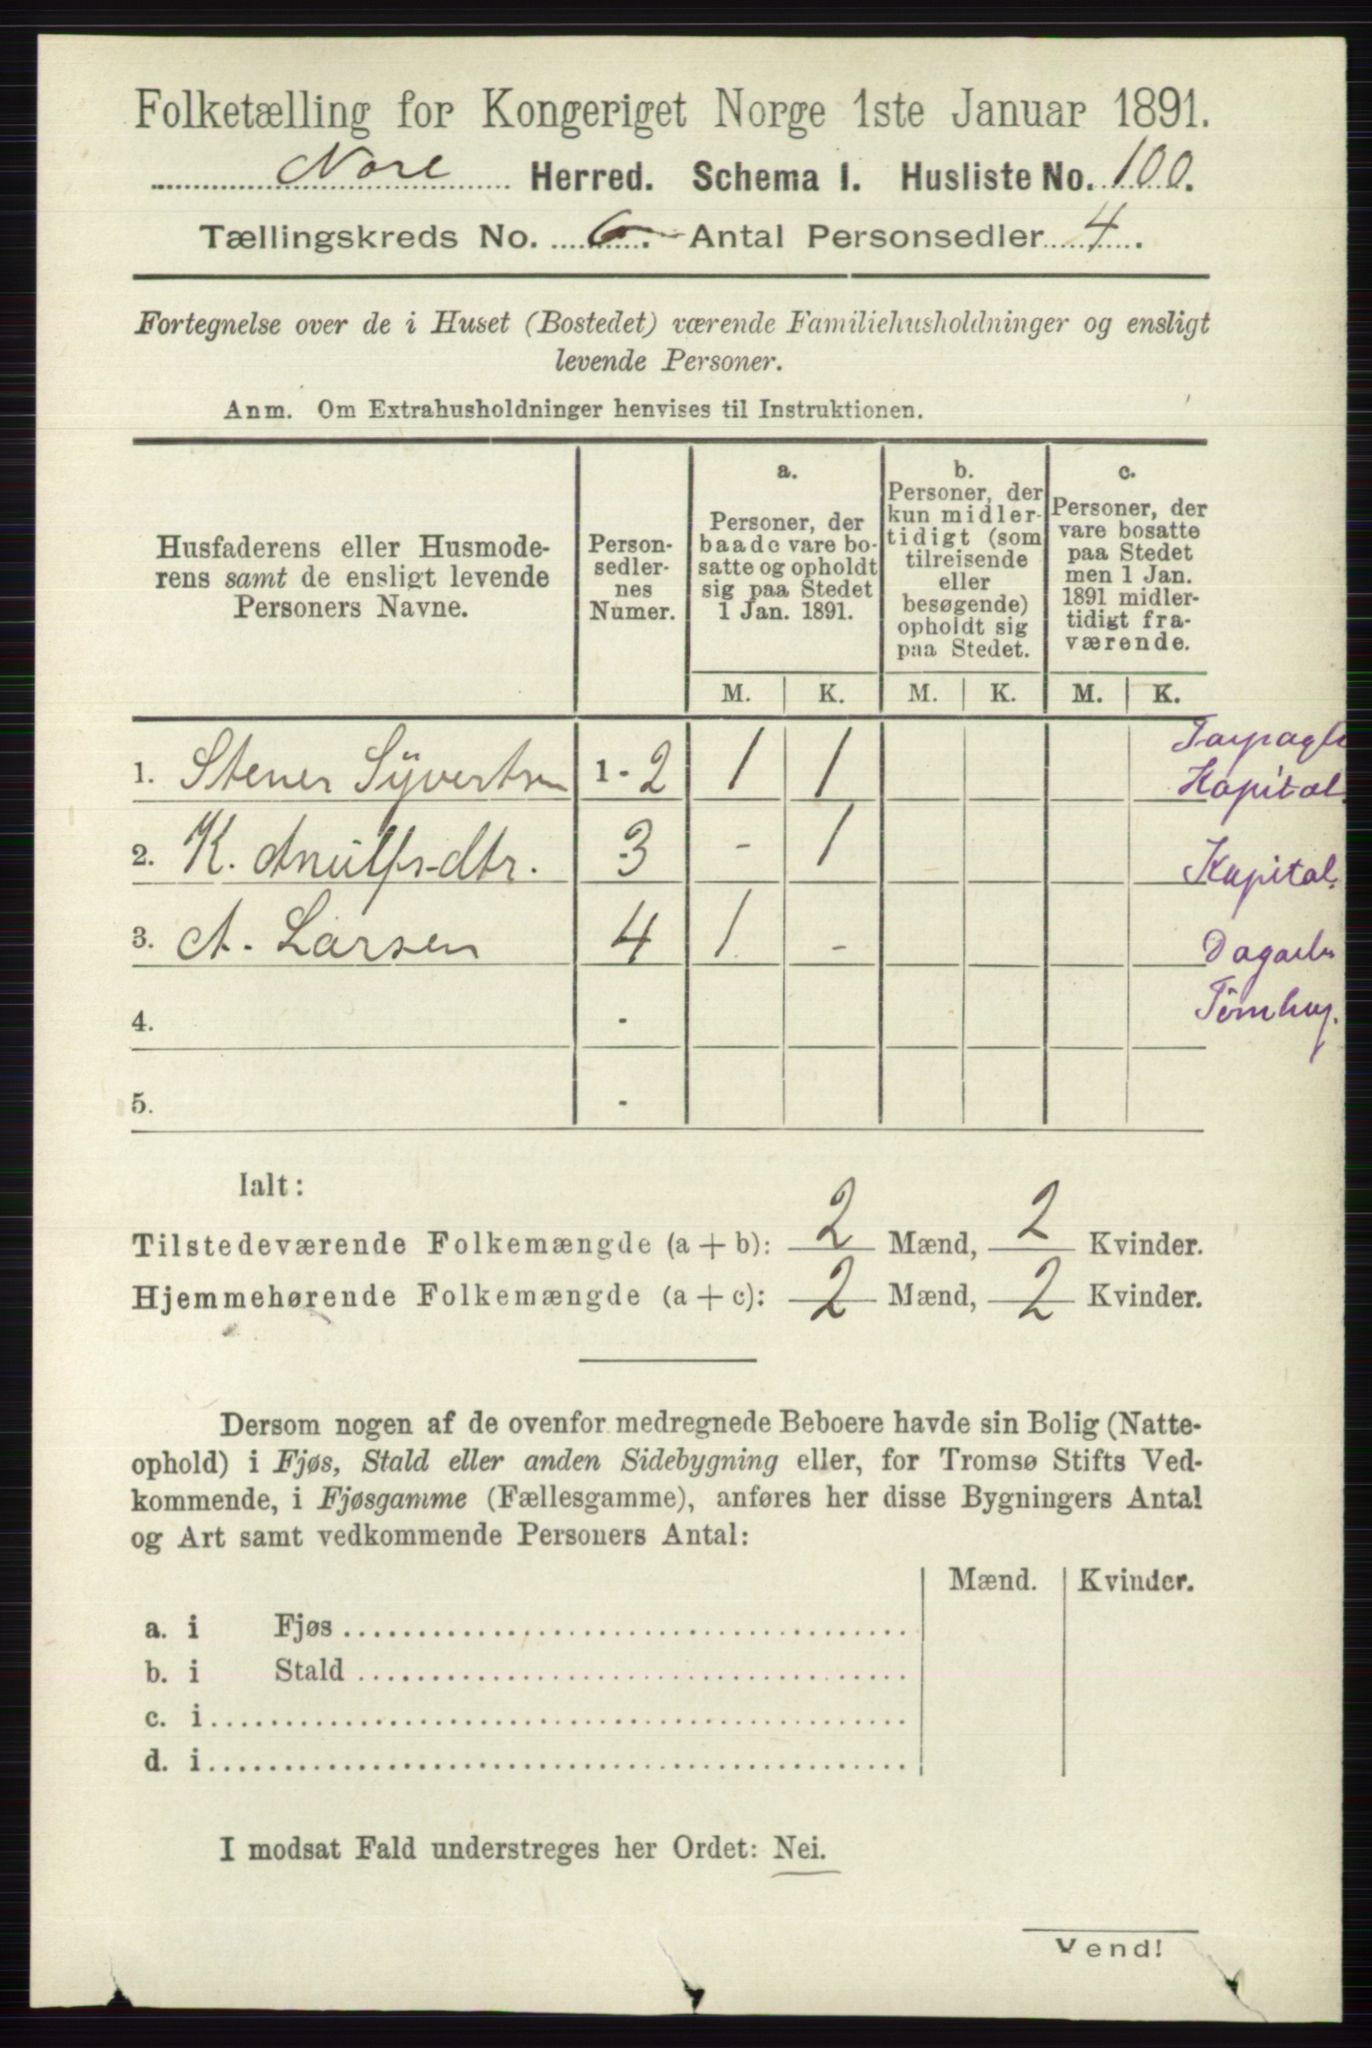 Folketælling for Kongeriget Norge 1ste Januar 1891.
Nore Herred. Schema I. Husliste No. 100.
Tællingskreds No. 6. Antal Personsedler 4.
Fortegnelse over de i Huset (Bostedet) værende Familiehusholdninger og ensligt
levende Personer.
Anm. Om Extrahusholdninger henvises til Instruktionen.
Husfaderens eller Husmode-
rens samt de ensligt levende
Personers Navne.
Person-
sedler-
nes
Numer.
a.
Personer, der
baade vare bo-
satte og opholdt
sig paa Stedet
1 Jan. 1891.
b.
Personer, der
kun midler-
tidigt (som
tilreisende
eller
besøgende)
opholdt sig
paa Stedet.
c.
Personer, der
vare bosatte
paa Stedet
men 1 Jan.
1891 midler-
tidigt fra-
værende.
M. K. M. K. M. K.
1. Stener Syvertsen 1 - 2 1 1
Kapital.
2. K. Anulfsdtr. 3 - 1 Kapital.
3. A. Larsen 4 1 -
4. -
5. -
Ialt:
Tilstedeværende Folkemængde (a + b): 2 Mænd, 2 Kvinder.
Hjemmehørende Folkemængde (a + c): 2 Mænd, 2 Kvinder.
Dersom nogen af de ovenfor medregnede Beboere havde sin Bolig (Natte-
ophold) i Fjøs, Stald eller anden Sidebygning eller, for Tromsø Stifts Ved-
kommende, i Fjøsgamme (Fællesgamme), anføres her disse Bygningers Antal
og Art samt vedkommende Personers Antal:
Mænd. Kvinder.
a. i Fjøs
b. i Stald
c. i
d. i
I modsat Fald understreges her Ordet: Nei.
Vend!